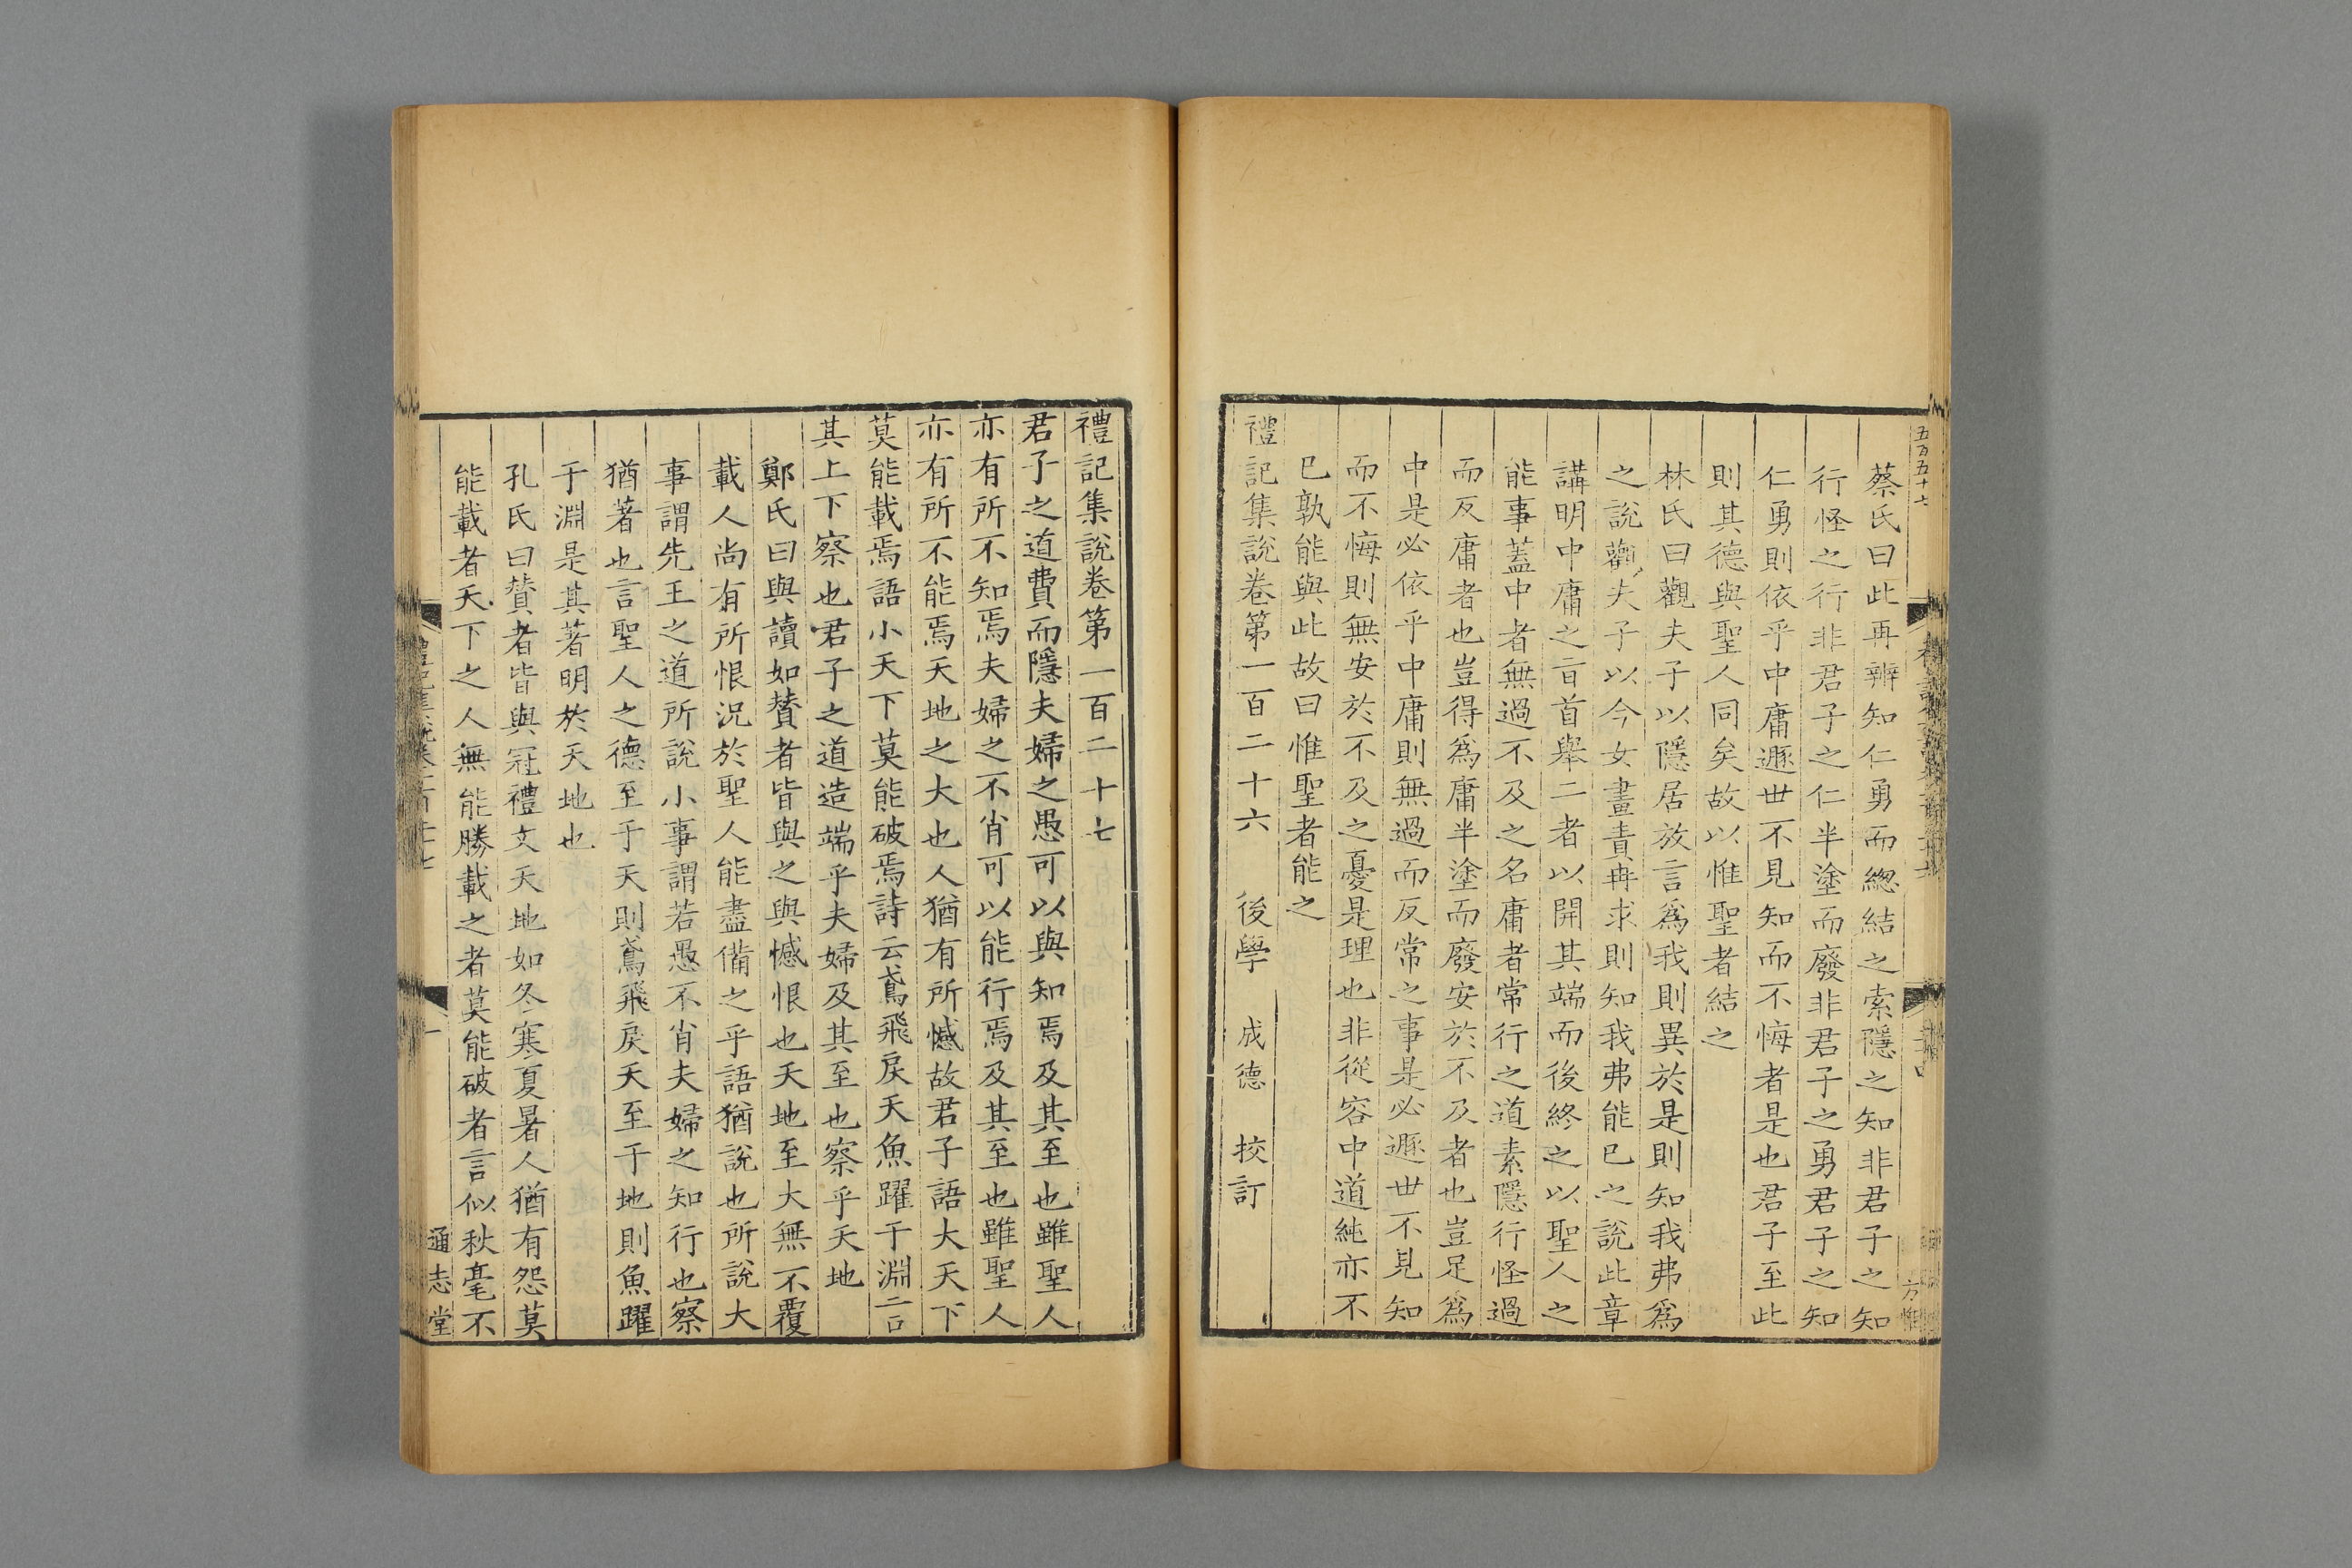 五百五十七
蔡氏曰此再辨知仁勇而總結之索隱之知非君子之知
行怪之行非君子之仁半塗而廢非君子之勇君子之知
仁勇則依乎中庸遯世不見知而不悔者是也君子至此
則其德與聖人同矣故以惟聖者結之
林氏曰觀夫子以隱居放言爲我則異於是則知我弗爲
之說觀夫子以今女畫責冉求則知我弗能已之說此章
講明中庸之旨首舉二者以開其端而後終之以聖人之
能事蓋中者無過不及之名庸者常行之道素隱行怪過
而反庸者也豈得爲庸半塗而廢安於不及者也豈足爲
中是必依乎中庸則無過而反常之事是必遯世不見知
而不悔則無安於不及之憂是理也非從容中道純亦不
已孰能與此故曰惟聖者能之
禮記集說卷第一百二十六 後學 成德 挍訂
禮記集說卷第一百二十七
君子之道費而隱夫婦之愚可以與知焉及其至也雖聖人
亦有所不知焉夫婦之不肖可以能行焉及其至也雖聖人
亦有所不能焉天地之大也人猶有所憾故君子語大天下
莫能載焉語小天下莫能破焉詩云鳶飛戾天魚躍于淵言
其上下察也君子之道造端乎夫婦及其至也察乎天地
鄭氏曰與讀如贊者皆與之與憾恨也天地至大無不覆
載人尚有所恨況於聖人能盡備之乎語猶說也所說大
事謂先王之道所說小事謂若愚不肖夫婦之知行也察
猶著也言聖人之德至于天則鳶飛戾天至于地則魚躍
于淵是其著明於天地也
孔氏曰贊者皆與冠禮文天地如冬寒夏暑人猶有怨莫
能載者天下之人無能勝載之者莫能破者言似秋毫不
通志堂